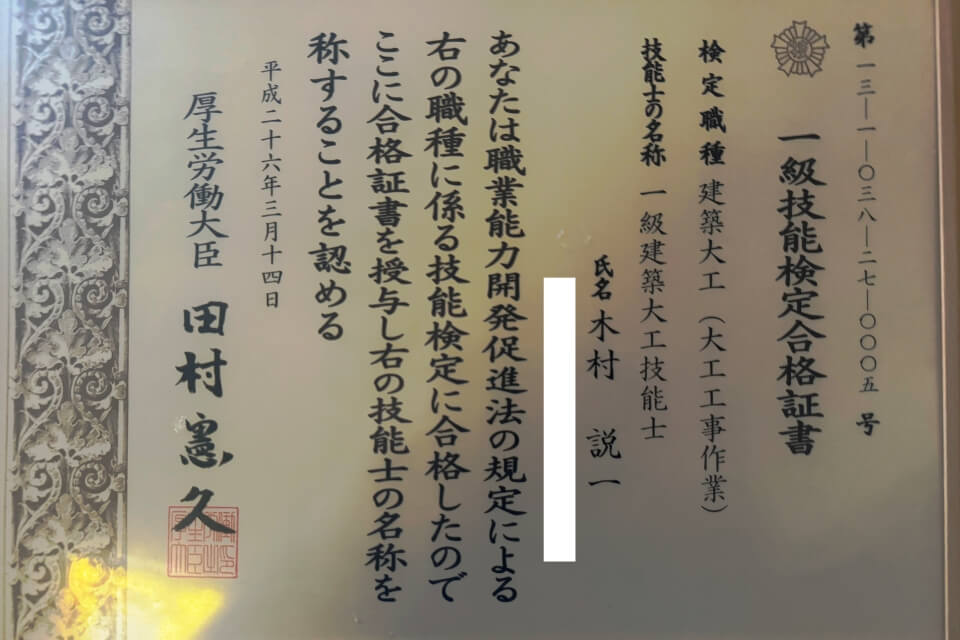 第一三―一―〇三八―二七―〇〇〇五号
一級技能検定合格証書
検定職種 建築大工（大工工事作業）
技能士の名称 一級建築大工技能士
氏名 木村 説一
あなたは職業能力開発促進法の規定による
右の職種に係る技能検定に合格したので
ここに合格証書を授与し右の技能士の名称を
称することを認める
平成二十六年三月十四日
厚生労働大臣 田村憲久